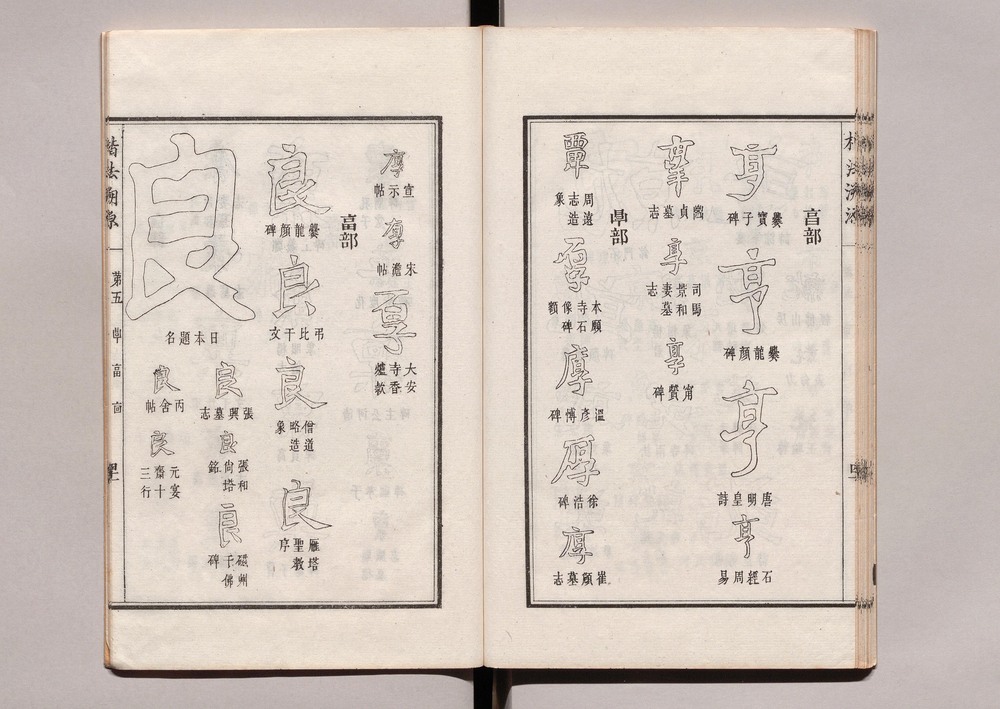 亯部
亨
爨寶子碑
亨
爨龍顏碑
亨
唐明皇詩
亨
石經周易
貞墓志
享
司馬景和妻墓志
享
甯贙碑
㫗部
覃
周遠志造象
厚
本願寺石像碑額
厚
溫彥博碑
厚
徐浩碑
厚
崔頠墓志
厚
宣示帖
厚
宋澹帖
厚
大安寺香爐款
畗部
良
爨龍顏碑
良
弔比干文
良
僧道略造象
良
雁塔聖教序
良
張興墓志
良
張和尚塔銘
良
磁州千佛碑
良
日本題名
良
丙舍帖
良
元宴齋十三行
楷法溯源
第五 㫗 畗 㐭